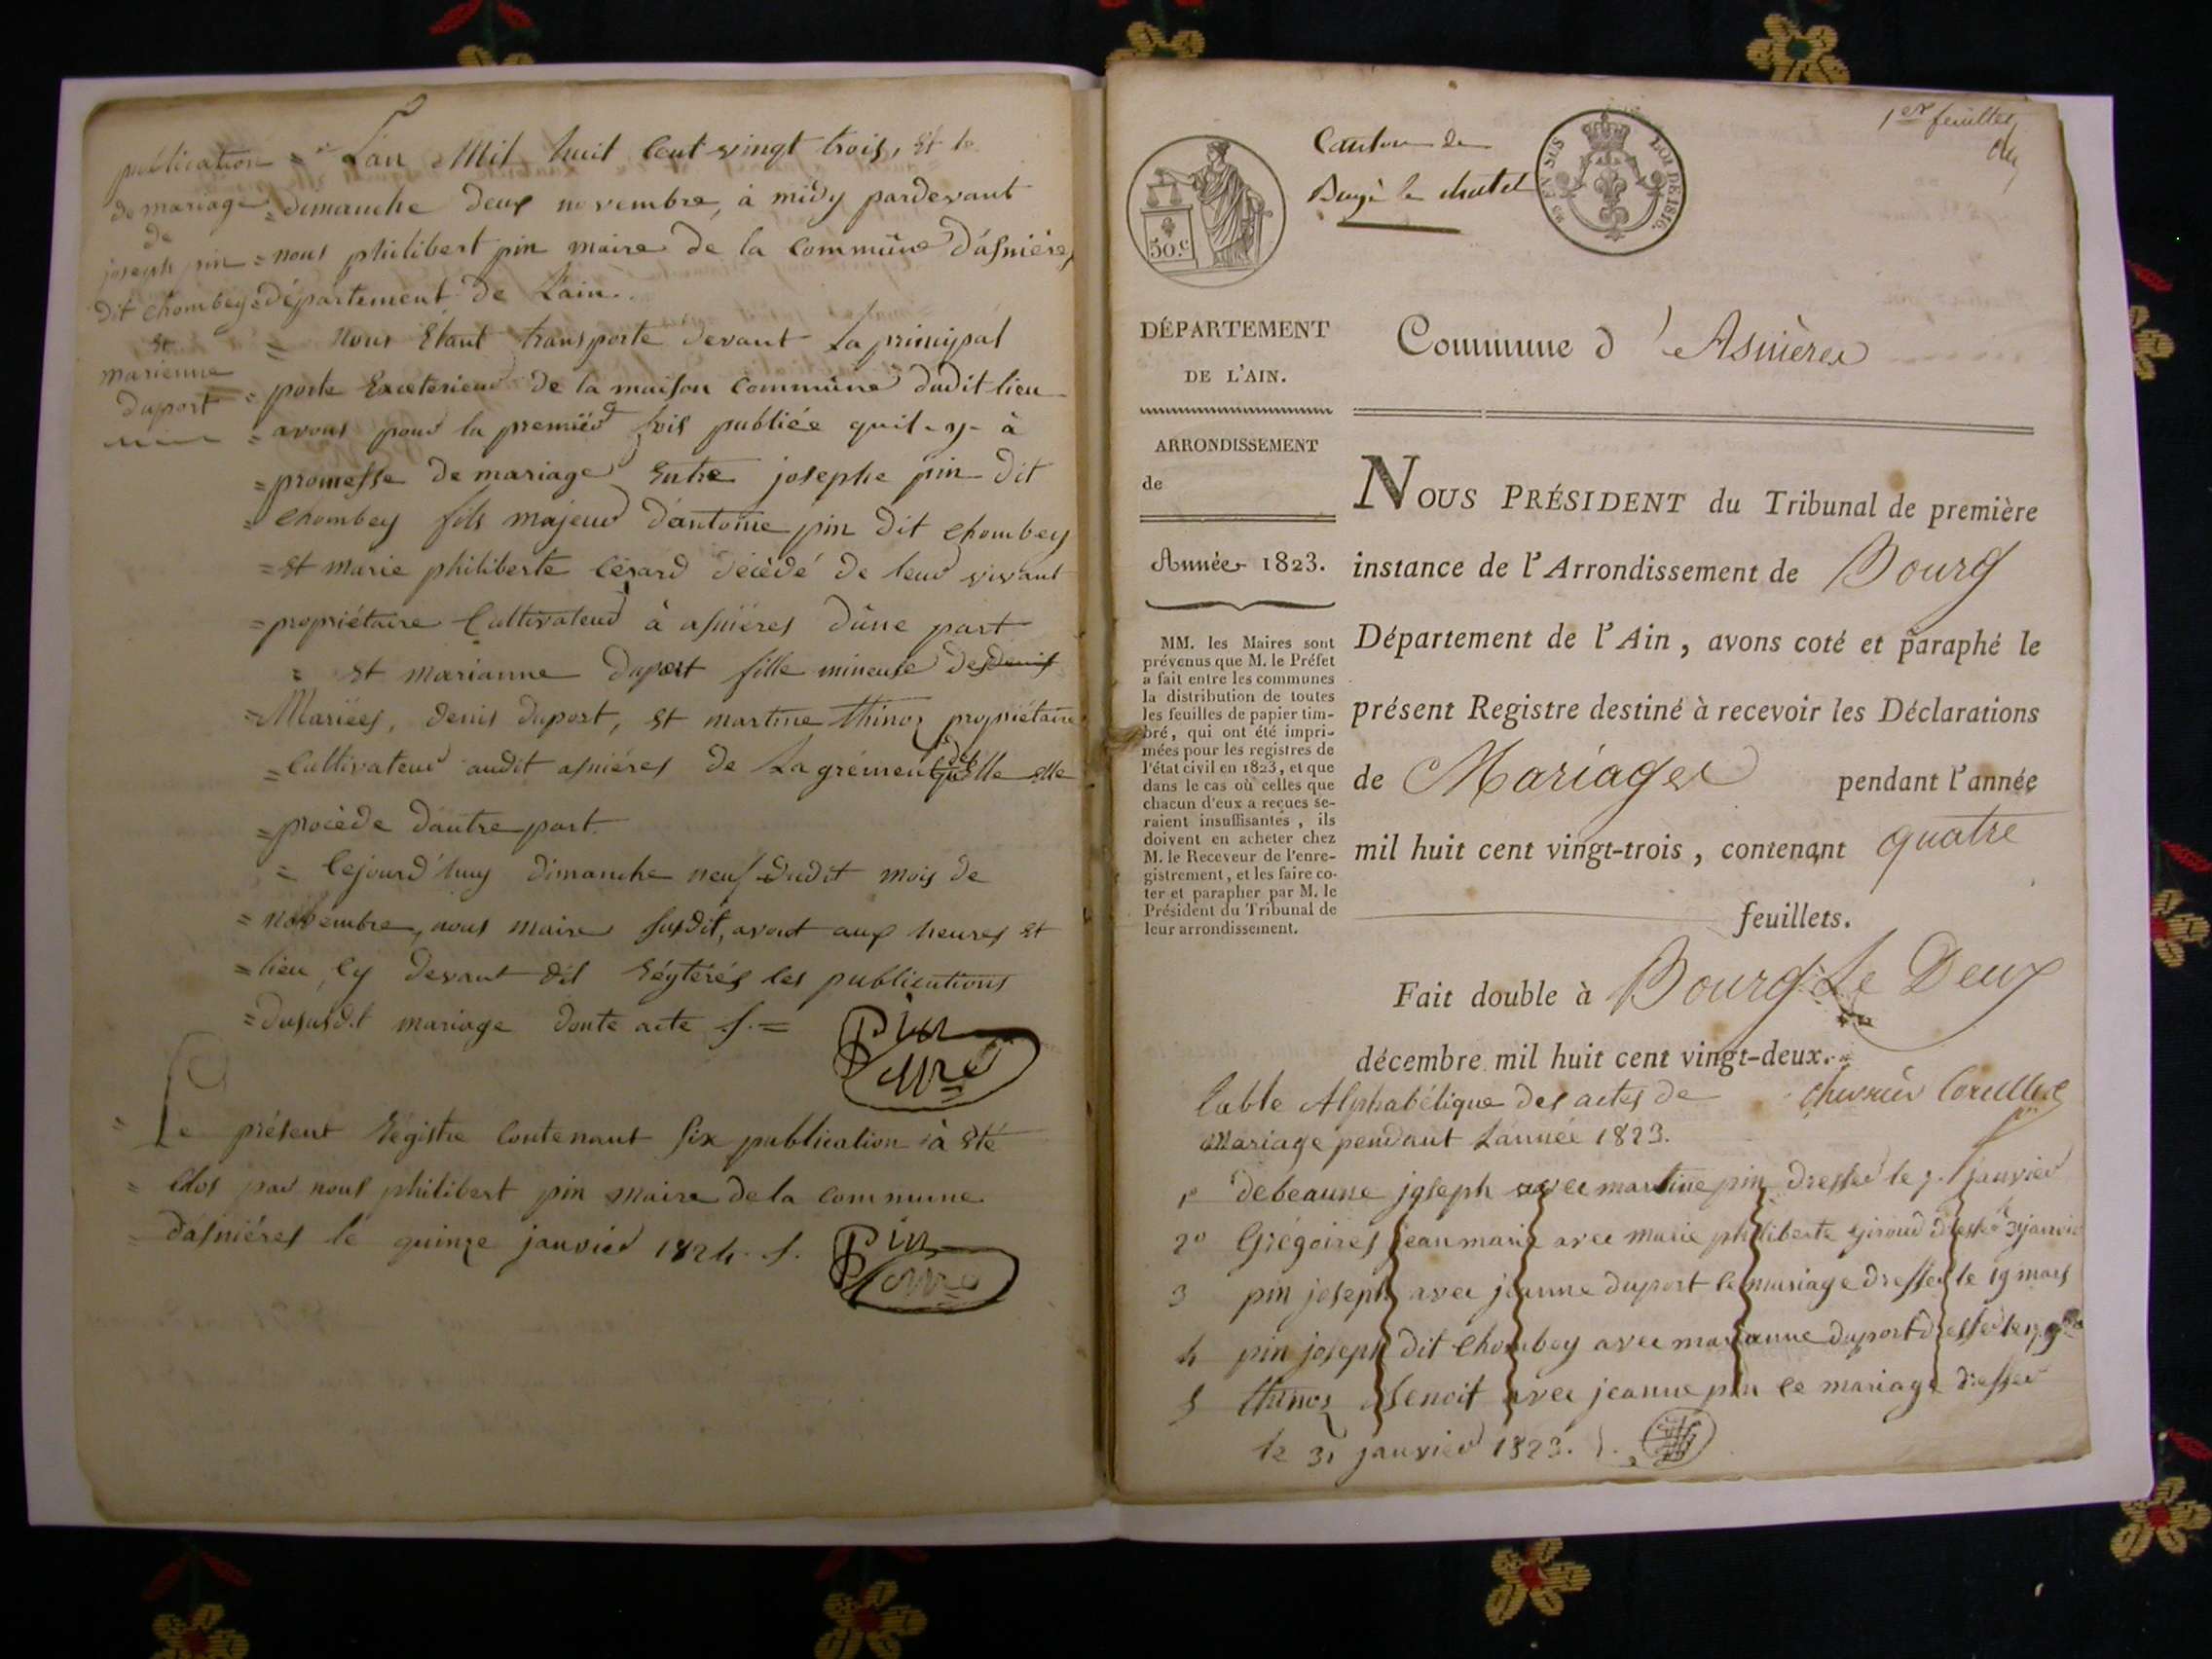 publication
de mariage
de
joseph pin
dit chombey
et
marienne
duport
L'an Mil huit Cent vingt trois, et le
= dimanche deux novembre, à midy pardevant
= nous philibert pin maire de la Commune d'asniéres
= département de L'ain.
= nous Étant transporté devant La principal
= porte Exceterieur de la maison Commune dudit lieu
= avons pour la premiér fois publiée quil-y-à
= promesse de mariage Entre josephe pin dit
= Chombey fils majeur d'antoine pin dit Chombey
= et marie philiberte Cérard décédé de leur vivant
= propriétaire Cultivateur à asniéres d'une part
= et marianne duport fille mineuse des denis
= Mariées, denis duport, et martine thinoz propriétaire
= Cultivateur audit asniéres de Lagrément desquelle elle
= procède d'autre part.
= Cejourd'huy dimanche neuf dudit mois de
= novembre, nous maire susdit, avont aux heures et
= lieu, Cy devant dit Réytérés les publications
= dususdit mariage donte acte f. =
Pin
Mre
= Le présent Régistre Contenant six publication à eté
= Clos par nous philibert pin maire de la Commune
= d'asniéres le quinze janvier 1824. f.
Pin
Mre
1er feuillet
Canton de
Bagé le chatel
50.C
DÉPARTEMENT
DE L'AIN.
Commune d'Asnières
ARRONDISSEMENT
de
Année 1823.
MM. les Maires sont
prévenus que M. le Préfet
a fait entre les communes
la distribution de toutes
les feuilles de papier tim-
bré, qui ont été impri-
mées pour les registres de
l'état civil en 1823, et que
dans le cas où celles que
chacun d'eux a reçues se-
raient insuffisantes, ils
doivent en acheter chez
M. le Receveur de l'enre-
gistrement, et les faire co-
ter et parapher par M. le
Président du Tribunal de
leur arrondissement.
NOUS PRÉSIDENT du Tribunal de première
instance de l'Arrondissement de Bourg
Département de l'Ain, avons coté et paraphé le
présent Registre destiné à recevoir les Déclarations
de Mariages pendant l'année
mil huit cent vingt-trois, contenant quatre
feuillets.
Fait double à Bourg Le Deux
décembre mil huit cent vingt-deux.
Table Alphabétique des actes de
Mariage pendant L'année 1823.
1º debeaune joseph avec martine pin dressé le 7. janvier
2º Grégoires jean marie avec marie philiberte Giroud dressé le 3 janvier
3 pin joseph avec jeanne duport le mariage dressé le 19 mars
4 pin joseph dit Chombey avec marianne duport dressé le
5 thinoz Benoit avec jeanne pin le mariage dressé
le 31 janvier 1823.